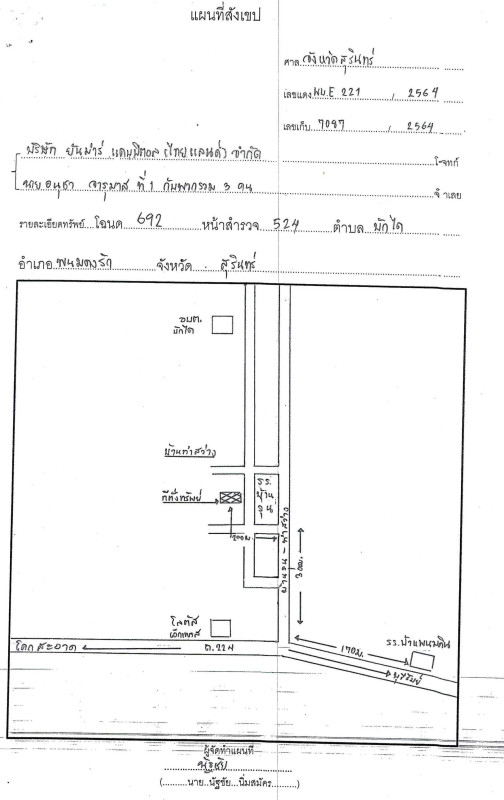 แผนที่สังเขป
ศาล จังหวัดสุรินทร์
เลขแดง ผบ.E 221 / 2564
เลขเก็บ 7097 / 2564
บริษัท ยันม่าร์ แคปปิตอล (ไทยแลนด์) จำกัด โจทก์
นาย อนุชา จารุมาศ ที่ 1 กับพวกรวม 3 คน จำเลย
รายละเอียดทรัพย์ โฉนด 692 หน้าสำรวจ 524 ตำบล บักได
อำเภอ พนมดงรัก จังหวัด สุรินทร์
อบต.
บักได
บ้านทำสว่าง
ที่ตั้งทรัพย์
รร.
บ้าน
จุน
200ม.
3 กม.
โลตัส
โคกสะอาด
ถ.224
170ม.
บุรีรัมย์
ผู้จัดทำแผนที่
นัฐชัย
(.........นาย..นัฐชัย...นิ่มสมัคร.........)